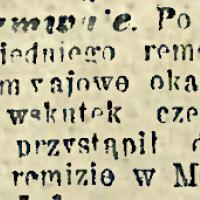 Po
iedniego rem
m rajowe oka
wskutek cze
przystąpił
remizie w M